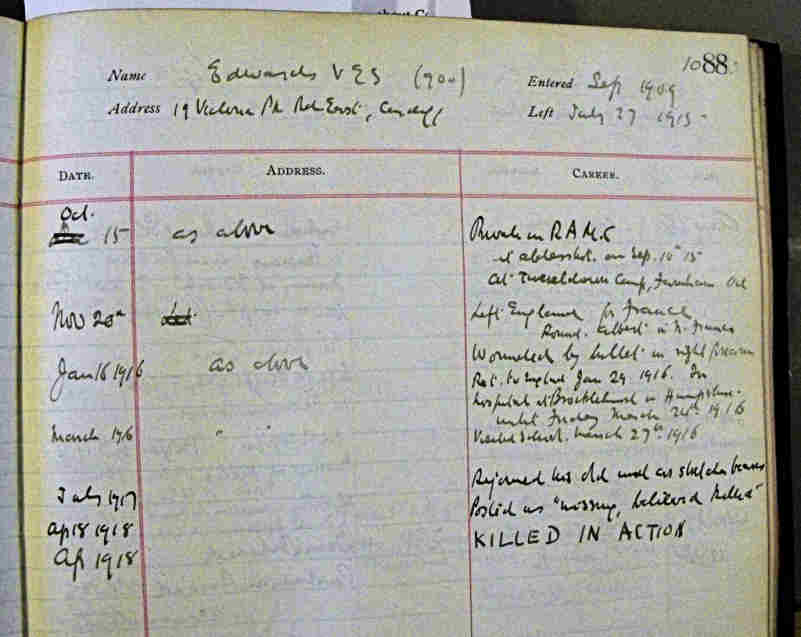 about C
1088
Name Edwards V E S (900) Entered Sep 1909
Address 19 Victoria Pk Rd East, Cardiff Left July 27 1915
DATE. ADDRESS. CAREER.
Oct.
15 as above Private in R A M C
at Aldershot. on Sep. 10th 15
at Tweseldown Camp, Farnham Oct
Nov 20th Left England for France
Round Albert in N. France
Jan 16 1916 as above Wounded by bullet in right forearm
Ret. to England Jan 29. 1916. In
hospital at Brocklehurst in Hampshire.
until Friday March 24th 1916
March 1916 " " Visited School. March 27th 1916
July 1917 Rejoined his old unit as stretcher bearer
Ap 18 1918 Posted as "missing, believed killed"
Ap 1918 KILLED IN ACTION